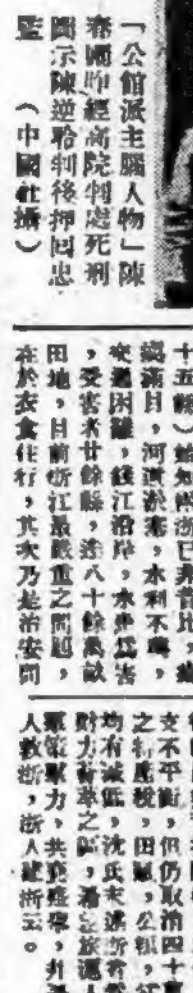 「公館派主腦人物」陳
春圃昨經高院判處死刑
圖示陳逆聆判後押回忠
監　（中國社攝）
十五縣）
滿目，河道淤塞，水利不
交通困難，錢江沿岸，水患為害
，受害者廿餘縣，達八十餘萬畝
田地，目前浙江最嚴重之問題，
在於衣食住行，其次乃是治安問
支不平衡，但仍取消四十
之特產稅，田賦，公糧，
均有減低，沈氏末述浙省
財力薈萃之區，旅滬人
眾策群力，共
人救浙，浙人建浙云。